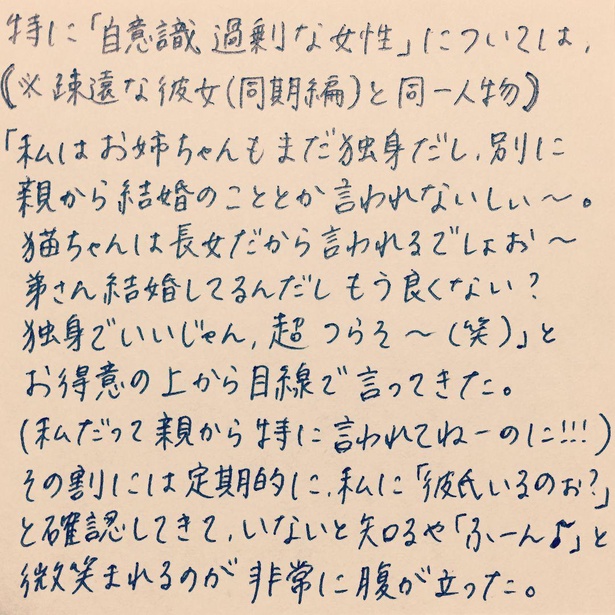 特に「自意識過剰な女性」については、
《※疎遠な彼女(同期編)と同一人物》
「私はお姉ちゃんもまだ独身だし、別に
親から結婚のこととか言われないしぃ〜。
猫ちゃんは長女だから言われるでしょお〜
弟さん結婚してるんだしもう良くない?
独身でいいじゃん、超つらそ〜(笑)」と
お得意の上から目線で言ってきた。
(私だって親から特に言われてねーのに!!!)
その割には定期的に、私に「彼氏いるのぉ?」
と確認してきて、いないと知るや「ふーん♪」と
微笑まれるのが非常に腹が立った。